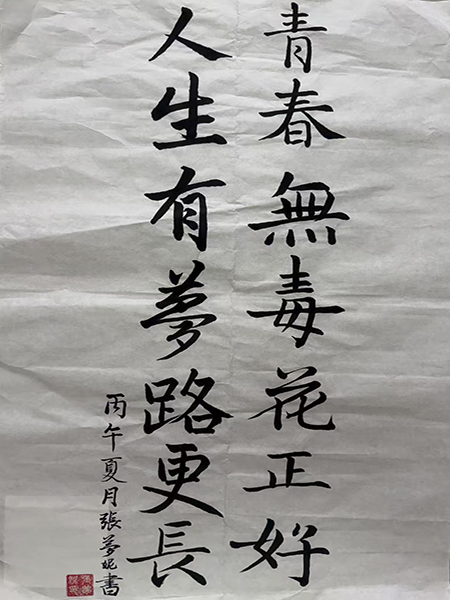 青春無毒花正好
人生有夢路更長
丙午夏月張夢妮書